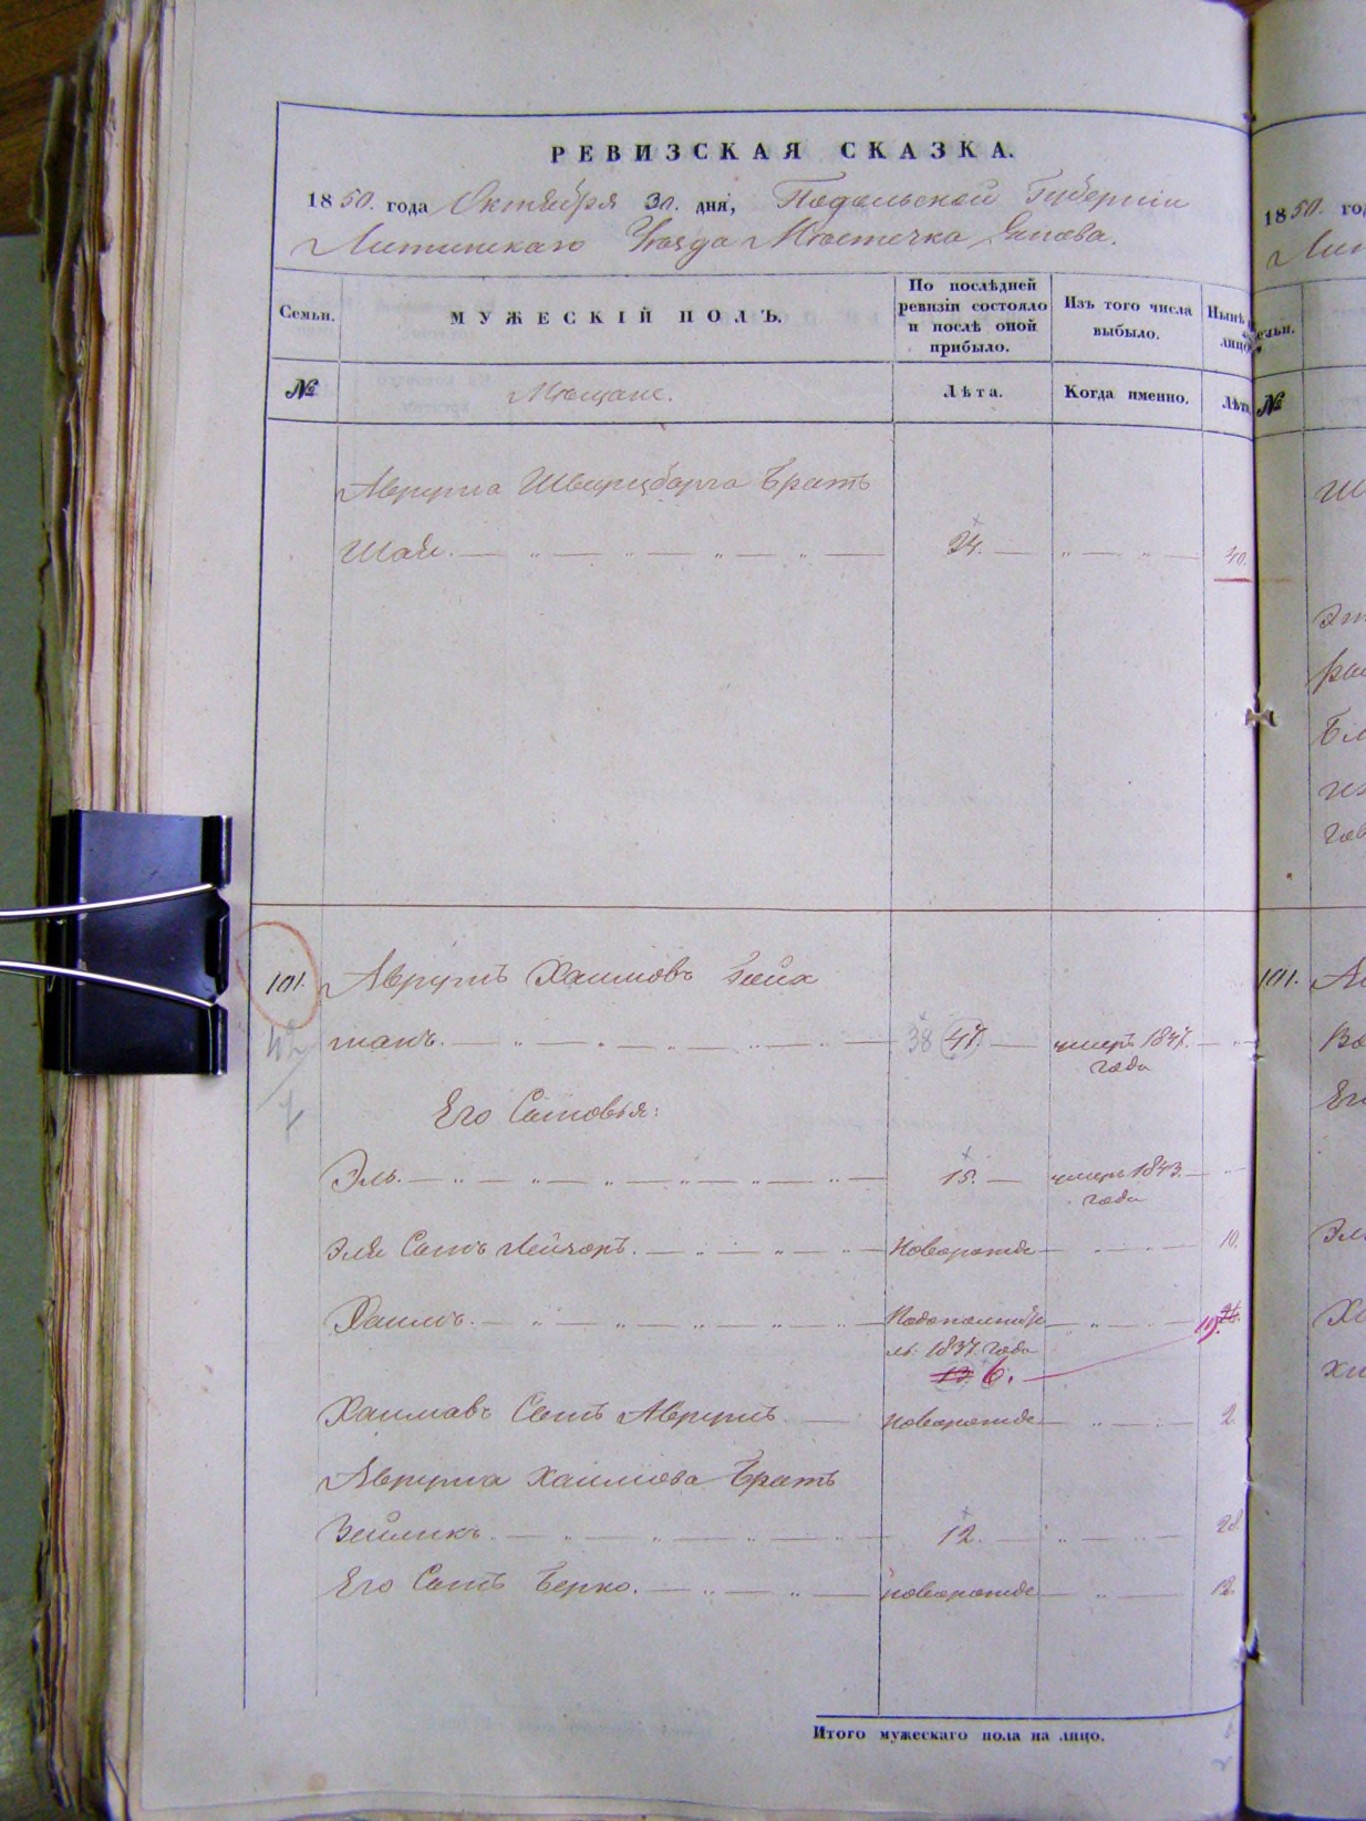 РЕВИЗСКАЯ СКАЗКА.
1850. года Октября 30. дня, Подольской Губерніи
Литинскаго Уѣзда Мѣстечка Янова.
Семьи.
МУЖЕСКІЙ ПОЛЪ.
По послѣдней ревизіи состояло и послѣ оной прибыло.
Изъ того числа выбыло.
Нынѣ
лицо
№
Мѣщане.
Лѣта.
Когда именно.
Лѣта
Аврума Шварцборга Братъ
Шая. 24. 40.
101. Аврумъ Хаимовъ Бейх
манъ. 38 47. умеръ 1847.
года
Его Сыновья:
Эль. 15. умеръ 1843.
года
Эля Сынъ Лейзоръ. Новорожде 10.
Хаимъ. 19.
ль: 1837. года
13. 6.
Хаимовъ Сынъ Аврумъ новорожде 2.
Аврума Хаимова Братъ
Зейликъ. 12. 28.
Его Сынъ Берко. новорожде 12.
Итого мужескаго пола на лицо.
1850. год
Лит
емьи.
№
Ш
Эт
Бл
101. Ав
Ег
Эл
Ха